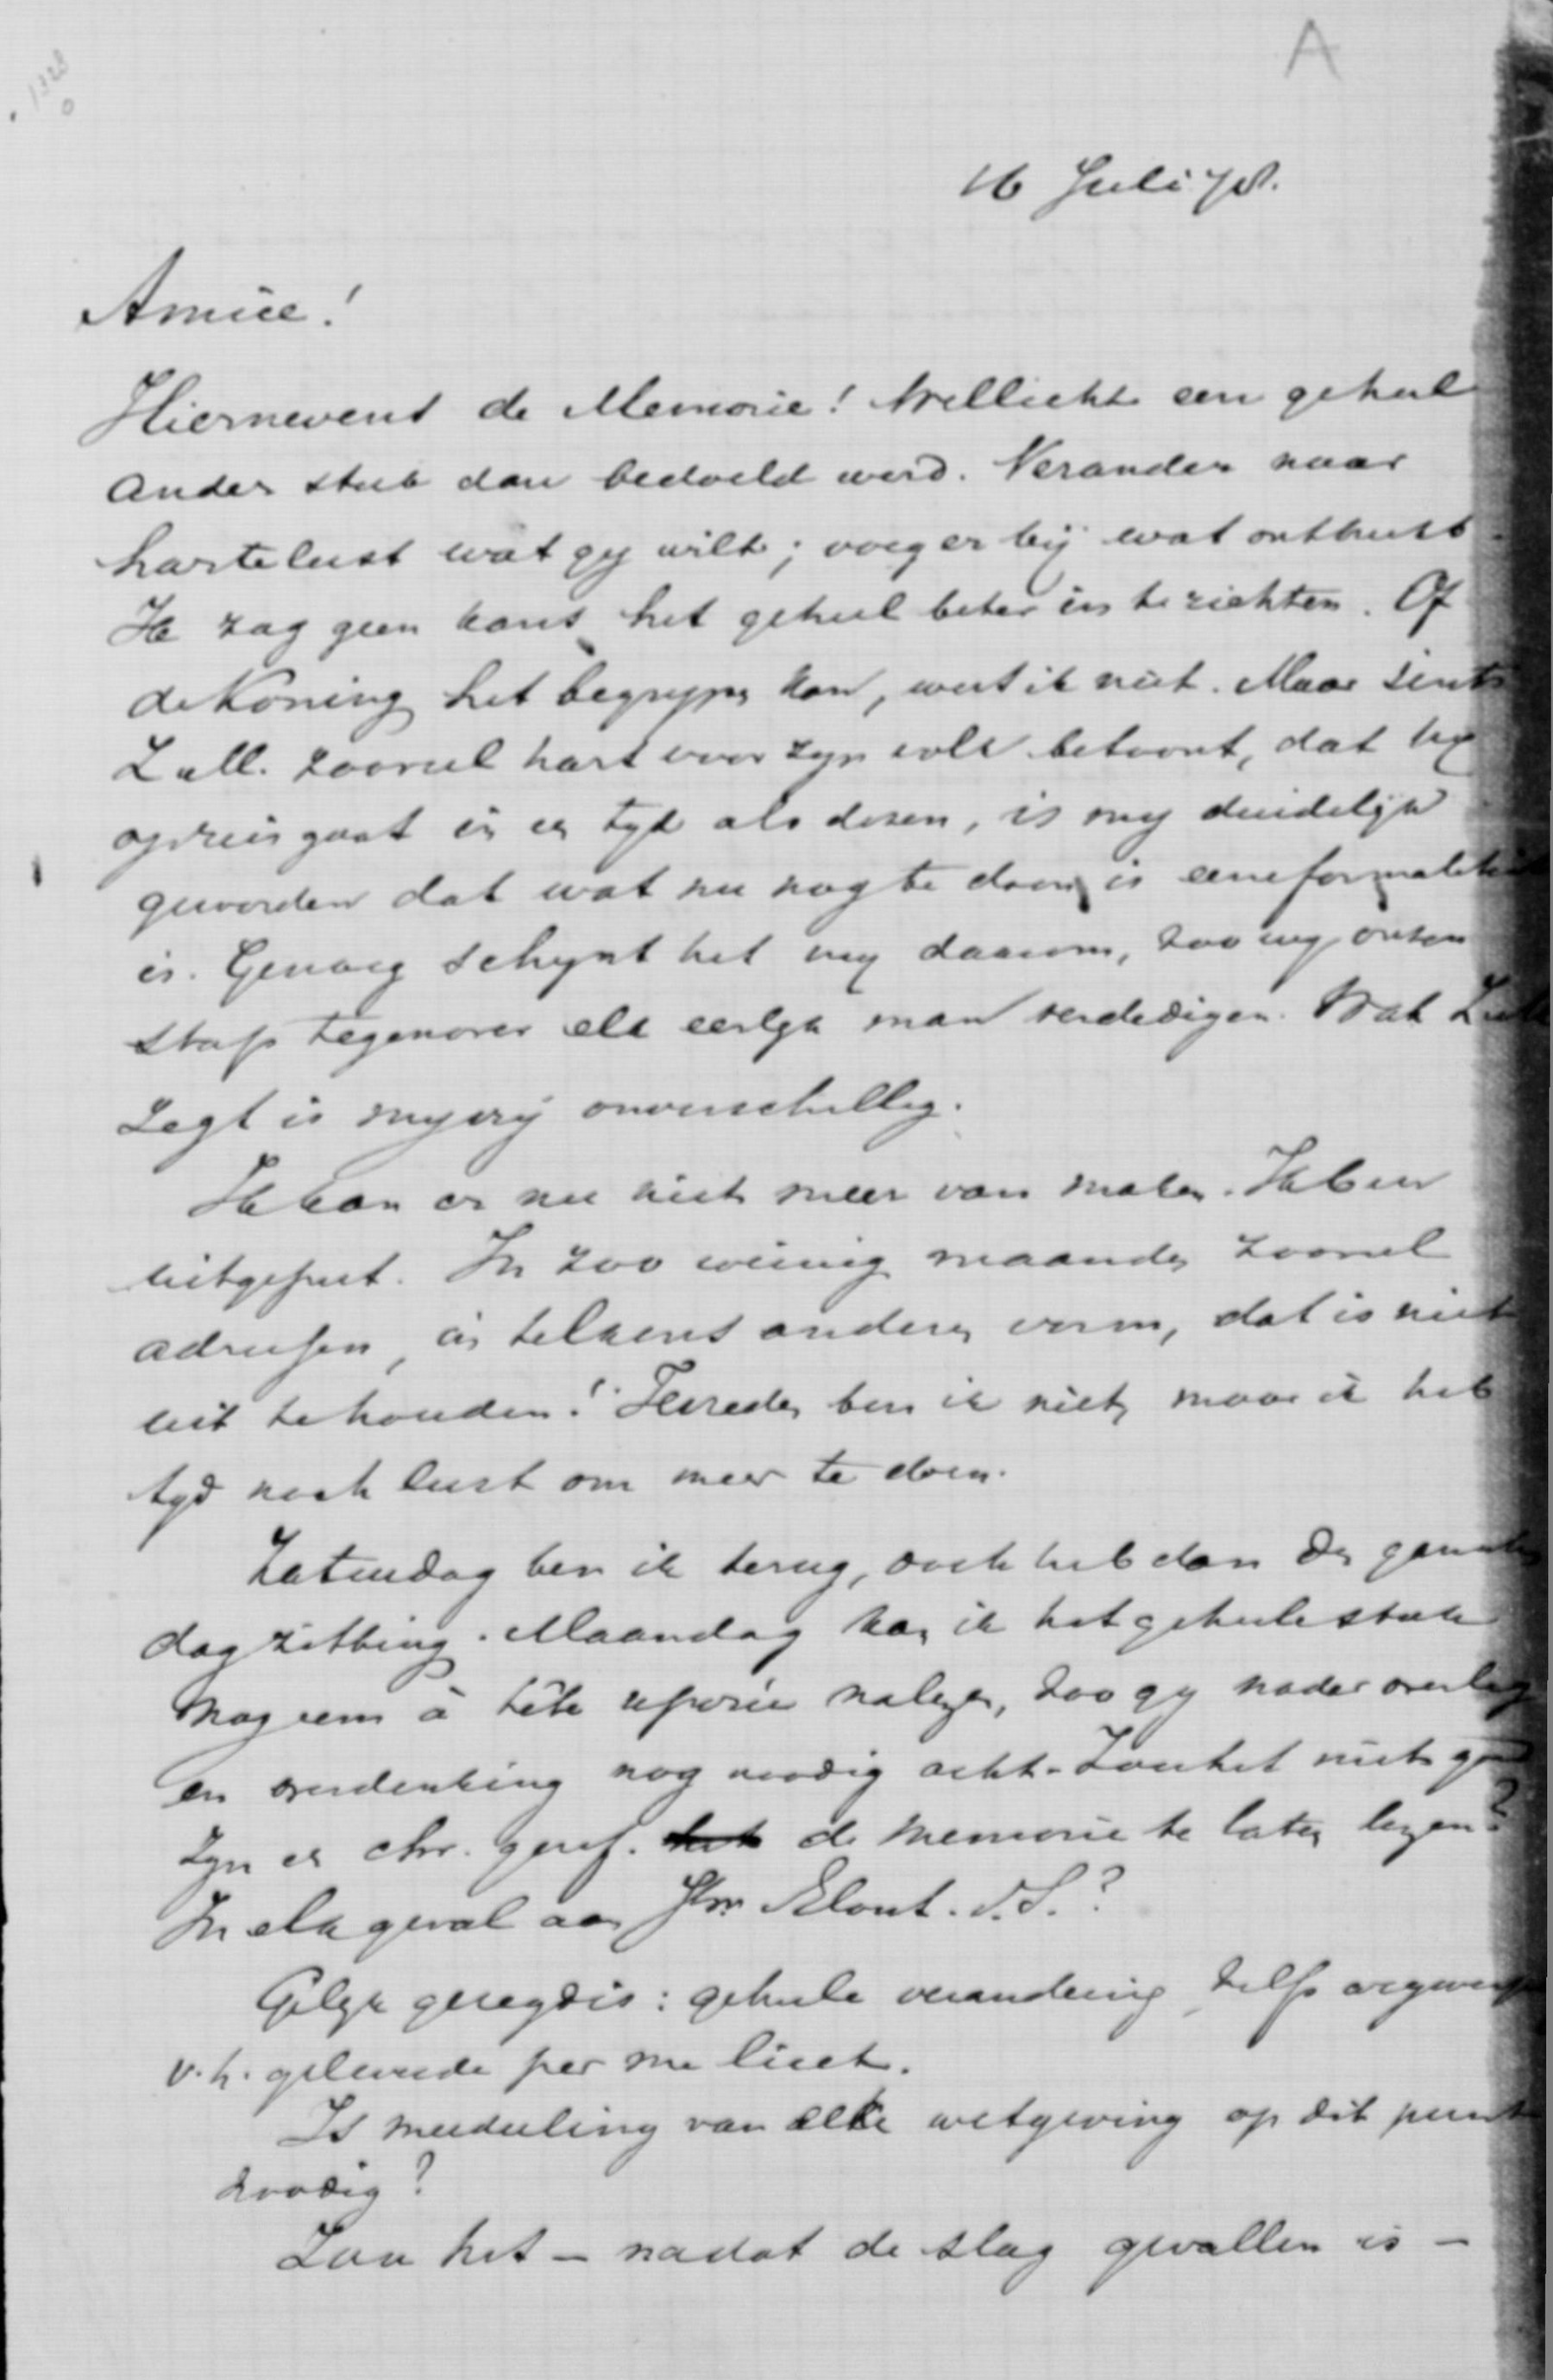 A
16 Juli 78.
Amice!
Hiernevens de Memorie! Wellicht een geheel
ander stuk dan bedoeld werd. Verander naar
hartelust wat gy wilt; voeg er bij wat ontbreekt.
Ik zag geen kans het geheel beter in te richten. Of
de Koning het begrypen kan, weet ik niet. Maar sints
Z. M. zooveel hart voor zyn volk betoont, dat hy
op reis gaat in een tyd als dezen, is my duidelyk
geworden dat wat nu nog te doen is eene formaliteit
is. Genoeg schynt het my daarom, zoo wy onzen
stap tegenover elk eerlyk man verdedigen. Wat
zegt is my vrij onverschillig.
Ik kan er nu niet meer van maken. Ik ben
uitgeput. In zoo weinig maanden zooveel
adressen, in telkens anderen vorm, dat is niet
uit te houden! Tevreden ben ik niet, maar ik heb
tyd noch lust om meer te doen.
Zaturdag ben ik terug, doch heb dan den
dag zitting. Maandag kan ik het geheele stuk
nog eens à tête reposée nalezen, zoo gy nader overleg
en overdenking nog noodig acht. Zou het niet goed
zyn en chr. geref. de memorie te laten lezen?
In elk geval aan Jhr. Elout. v. S.?
Gelyk gezegd is: geheele verandering, zelfs
v. h. geleverde per me licet.
Is mededeeling van elke wetgeving op dit punt
noodig?
Zou het - nadat de slag gevallen is -